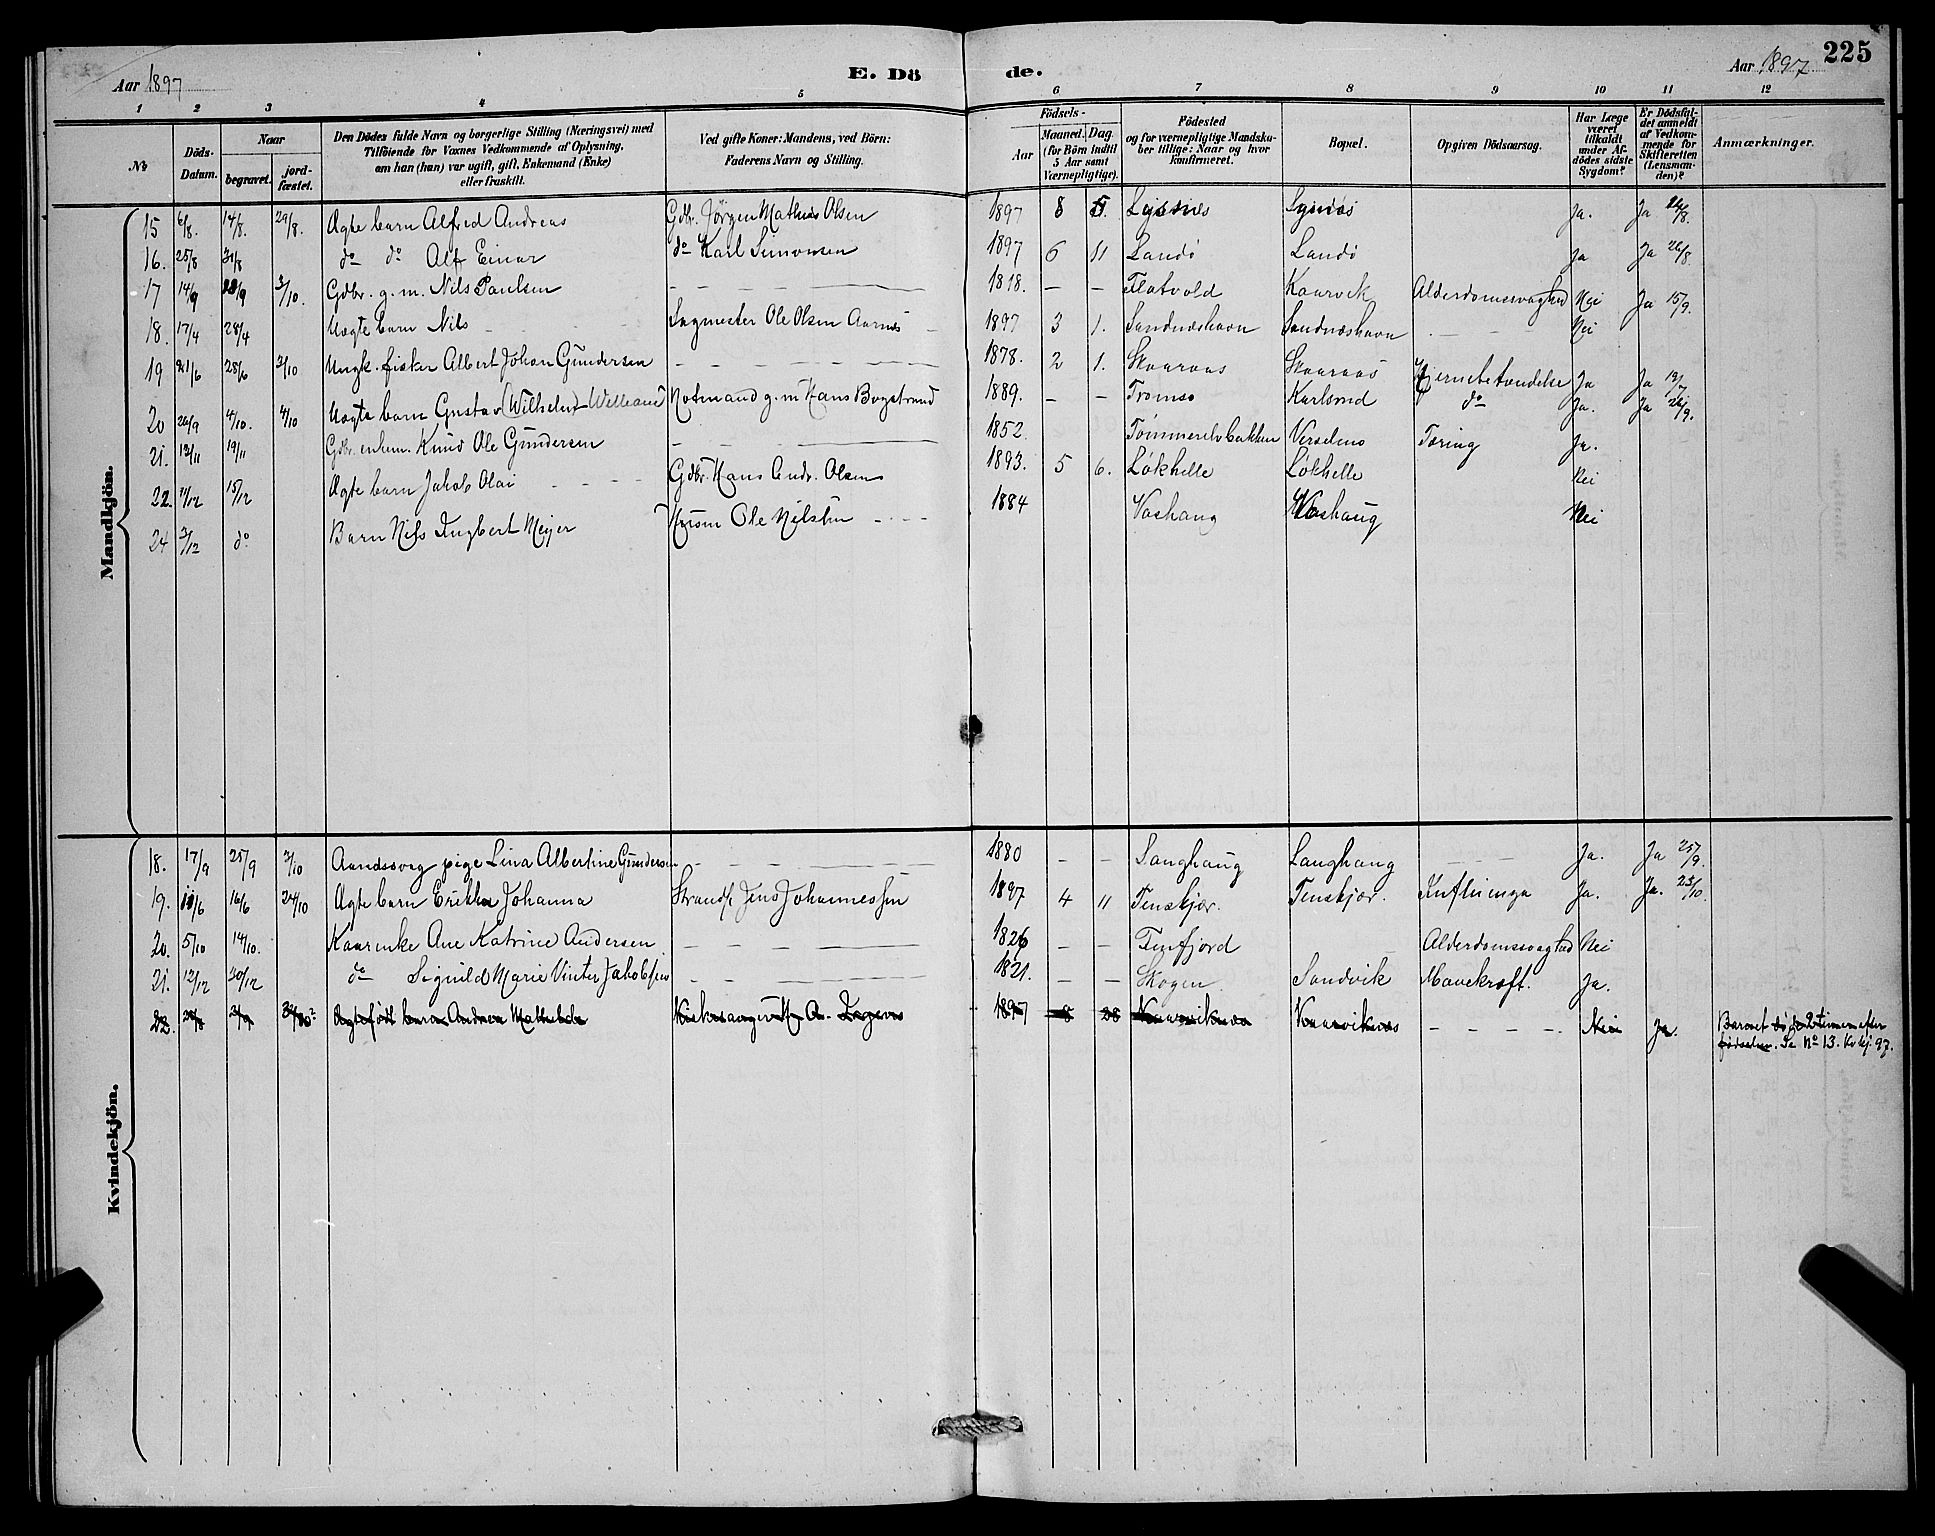 225
Aar 1897 E. Dö de. Aar 1897
1 2 3 4 5 6 7 8 9 10 11 12
No. Döds-Datum. Naar begravet. jordfæstet. Den Dödes fulde Navn og borgerlige Stilling (Næringsvei) med Tilföiende for Voxnes Vedkommende af Oplysning, om han (hun) var ugift, gift, Enkemand (Enke) eller fraskilt. Ved gifte Koner: Mandens, ved Börn: Faderens Navn og Stilling. Födsels- Aar Maaned. Dag. (for Börn indtil 5 Aar samt Værnepligtige). Födested og for værnepligtige Mandskaber tillige: Naar og hvor konfirmeret. Bopæl. Opgiven Dödsaarsag. Har Læge været tilkaldt under Afdödes sidste Sygdom? Er Dödsfaldet anmeldt af Vedkommende for Skifteretten (Lensmanden)? Anmærkninger.
Mandkjön.
15 6/8. 14/8. 29/8. Ægte barn Alfred Andreas Gdbr. Jørgen Mathias Olsen 1897 8 5. Lysnes Lysnes Ja. Ja 24/8.
16. 25/8 31/8 do do Alf Einar do Karl Simonsen 1897 6 11 Landø Landø Ja Ja 26/8.
17 14/9 28/9 3/10. Gdbr. g. m. Nils Paulsen — — 1818. — — Flatvold Kaarvik Alderdomssvaghed Nei Ja 15/9.
18. 17/4 28/4 Uægte barn Nils Sagmester Ole Olsen Aarnes 1897 3 1. Sandneshavn Sandneshavn — — Nei
19 21/6 28/6 3/10 Ungk. fisker Albert Johan Gundersen — — 1878. 2 1. Skaaraas Skaaraas Hjernebetændelse Ja Ja 12/7
20 26/9 4/10. 4/10 Uægte barn Gustav (Wilhelm) Notmand g. m. Hans Bogstrand 1889. — — Tromsø Karlsund do Ja. Ja 28/9.
21. 12/11 19/11 Gdbr. enkem. Knud Ole Gundersen — — 1852. Tømmerelvbakken Verselmo Tæring Ja.
22. 11/12 15/12 Ægte barn Jakob Olai Gdbr. Hans Andr. Olsen 1893. 5 6. Løkhelle Løkhelle Nei
24 3/12 do Barn Nils Ingbert Meyer Husm Ole Nilsen 1884 Vashaug Vashaug Nei
Kvindekjön.
18. 17/9 25/9 3/10 Aandssvag pige Lina Albertine Gundersen — — 1880 — — Langhaug Langhaug — — Ja. Ja 25/9.
19. 11/6 16/6 24/10 Ægte barn Erikka Johanna Strands. Jens Johannessen 1897 4 11 Tenskjær. Tenskjær. Influenza Ja. Ja. 23/10.
20. 5/10 14/10. Kaarenke Ane Katrine Andersen — — 1826 — — Finfjord Alderdomssvaghed Nei
21. 12/12 20/12 do Signild Marie Vinter Jakobsen — — 1821. — — Skogen. Sandvik Mavekræft. Ja.
22. 28/8 3/9 Ægtefødt barn Andrea Mathilde Kirkesanger H. A. 1897 8 28 Kaarviknes Kaarviknes — — Nei Ja. Barnet døde 2 timer efter
fødselen. Se No 13. Kvkj. 97.